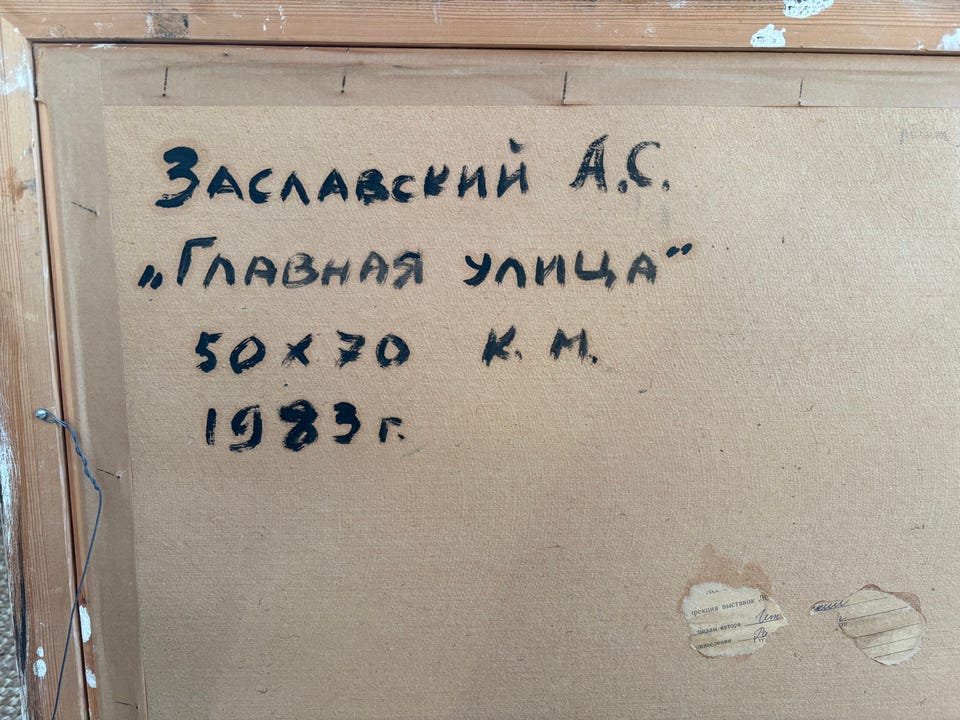 Заславский А.С.
„Главная улица"
50х70 К.М.
1983г.
рекция выставок
автора